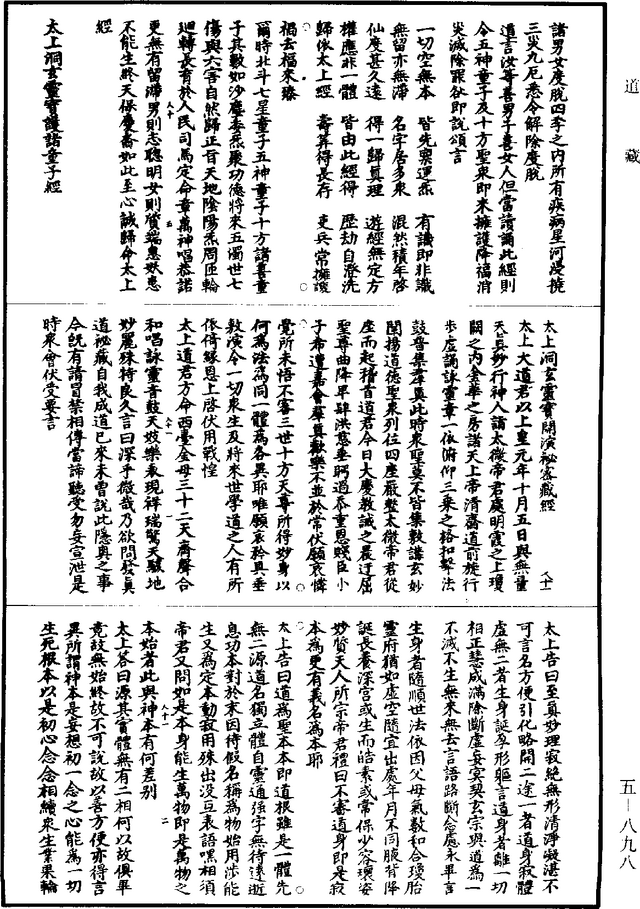 道藏
諸男女度脫四季之內所有疾病星河漫撓
三災九厄悉令解除度脫
道言汝等善男子善女人但當讀誦此經則
令五神童子及十方聖衆即來擁護降福消
災滅除罪咎即說頌言
一切空無本　皆先稟運炁　有識即非識
無留亦無滯　名字居多衆　混然積年啓
仙度甚久遠　得一歸真理　遊經無定方
權應非一體　皆由此經得　歷劫自澄洗
歸依太上經　壽筭得長存　吏兵常擁護
禍去福來臻
爾時北斗七星童子五神童子十方諸善童
子其數如沙塵委炁聚功德將來五濁世七
傷與六害自然歸正旨天地陰陽炁周匝輪
迴轉長育於人民司馬定命章萬神唱恭諾
更無有留滯男則志聰明女則質端惠妖惡
不能生終天保慶番如此至心誠歸命太上
經
太上洞玄靈寶護諸童子經
太上洞玄靈寶開演祕密藏經
太上大道君以上皇元年十月五日與無量
天真妙行神人詣太微帝君處明霞之上瓊
闕之內金華之房諸天上帝清齋道前旋行
步虛誦詠靈章一依俯仰三乘之格扣擊法
鼓普集羣真此時衆聖莫不皆集敷講玄妙
闡揚道德聖衆列位四座嚴整太微帝君從
座而起稽首道君今日大慶教誡之晨迂屈
聖尊曲降卑肆洪慈垂眄過泰重恩賤臣小
子希遭嘉會羣真歡樂不並於常伏願哀憐
覺所未悟不審三世十方天尊所得妙身以
何爲法爲同一體爲各異耶唯願哀矜具垂
教演令一切衆生及將來世學道之人有所
依倚緣恩上啓伏用戰惶
太上道君方命西臺金母三十二天齊聲合
和唱詠靈音鼓天妓樂表現祥瑞驚天駭地
妙麗殊特良久言曰深乎微哉乃欲問發真
道祕藏自我成道已來未曾說此隱奧之事
今既有請冒禁相傳當諦聽受勿妄宣泄是
時衆會伏受要言
太上告曰至真妙理寂絕無形清淨凝湛不
可言名方便引化略開二途一者道身寂體
虛無二者生身誕孕形軀言道身者離一切
相正慧成滿除斷虛妄冥契玄宗與道爲一
不滅不生無來無去言語路斷念慮永畢言
生身者隨順世法依因父母氣數和合瓊胎
靈府猶如虛空隨宜出處年月不同腋背降
誕長養深宮或生而皓素或常保少容瓌姿
妙質天人所宗帝君禮曰不審道身即是寂
本爲更有義名爲本耶
太上告曰道爲聖本本即道根雖是一體先
無二源道名獨立體自靈通強字無待逺逝
息功本對於末因待假名稱爲物始用涉能
生又爲定本動寂用殊出没互表語嘿相須
帝君又問如是本身能生萬物即是萬物之
本始者此與神本有何差别
太上答曰源其實體無有二相何以故俱畢
竟故無始終故不可說故以善方便亦得言
異所謂神本是妄想初一念之心能爲一切
生死根本以是初心念念相續衆生業果輪
五－八九八